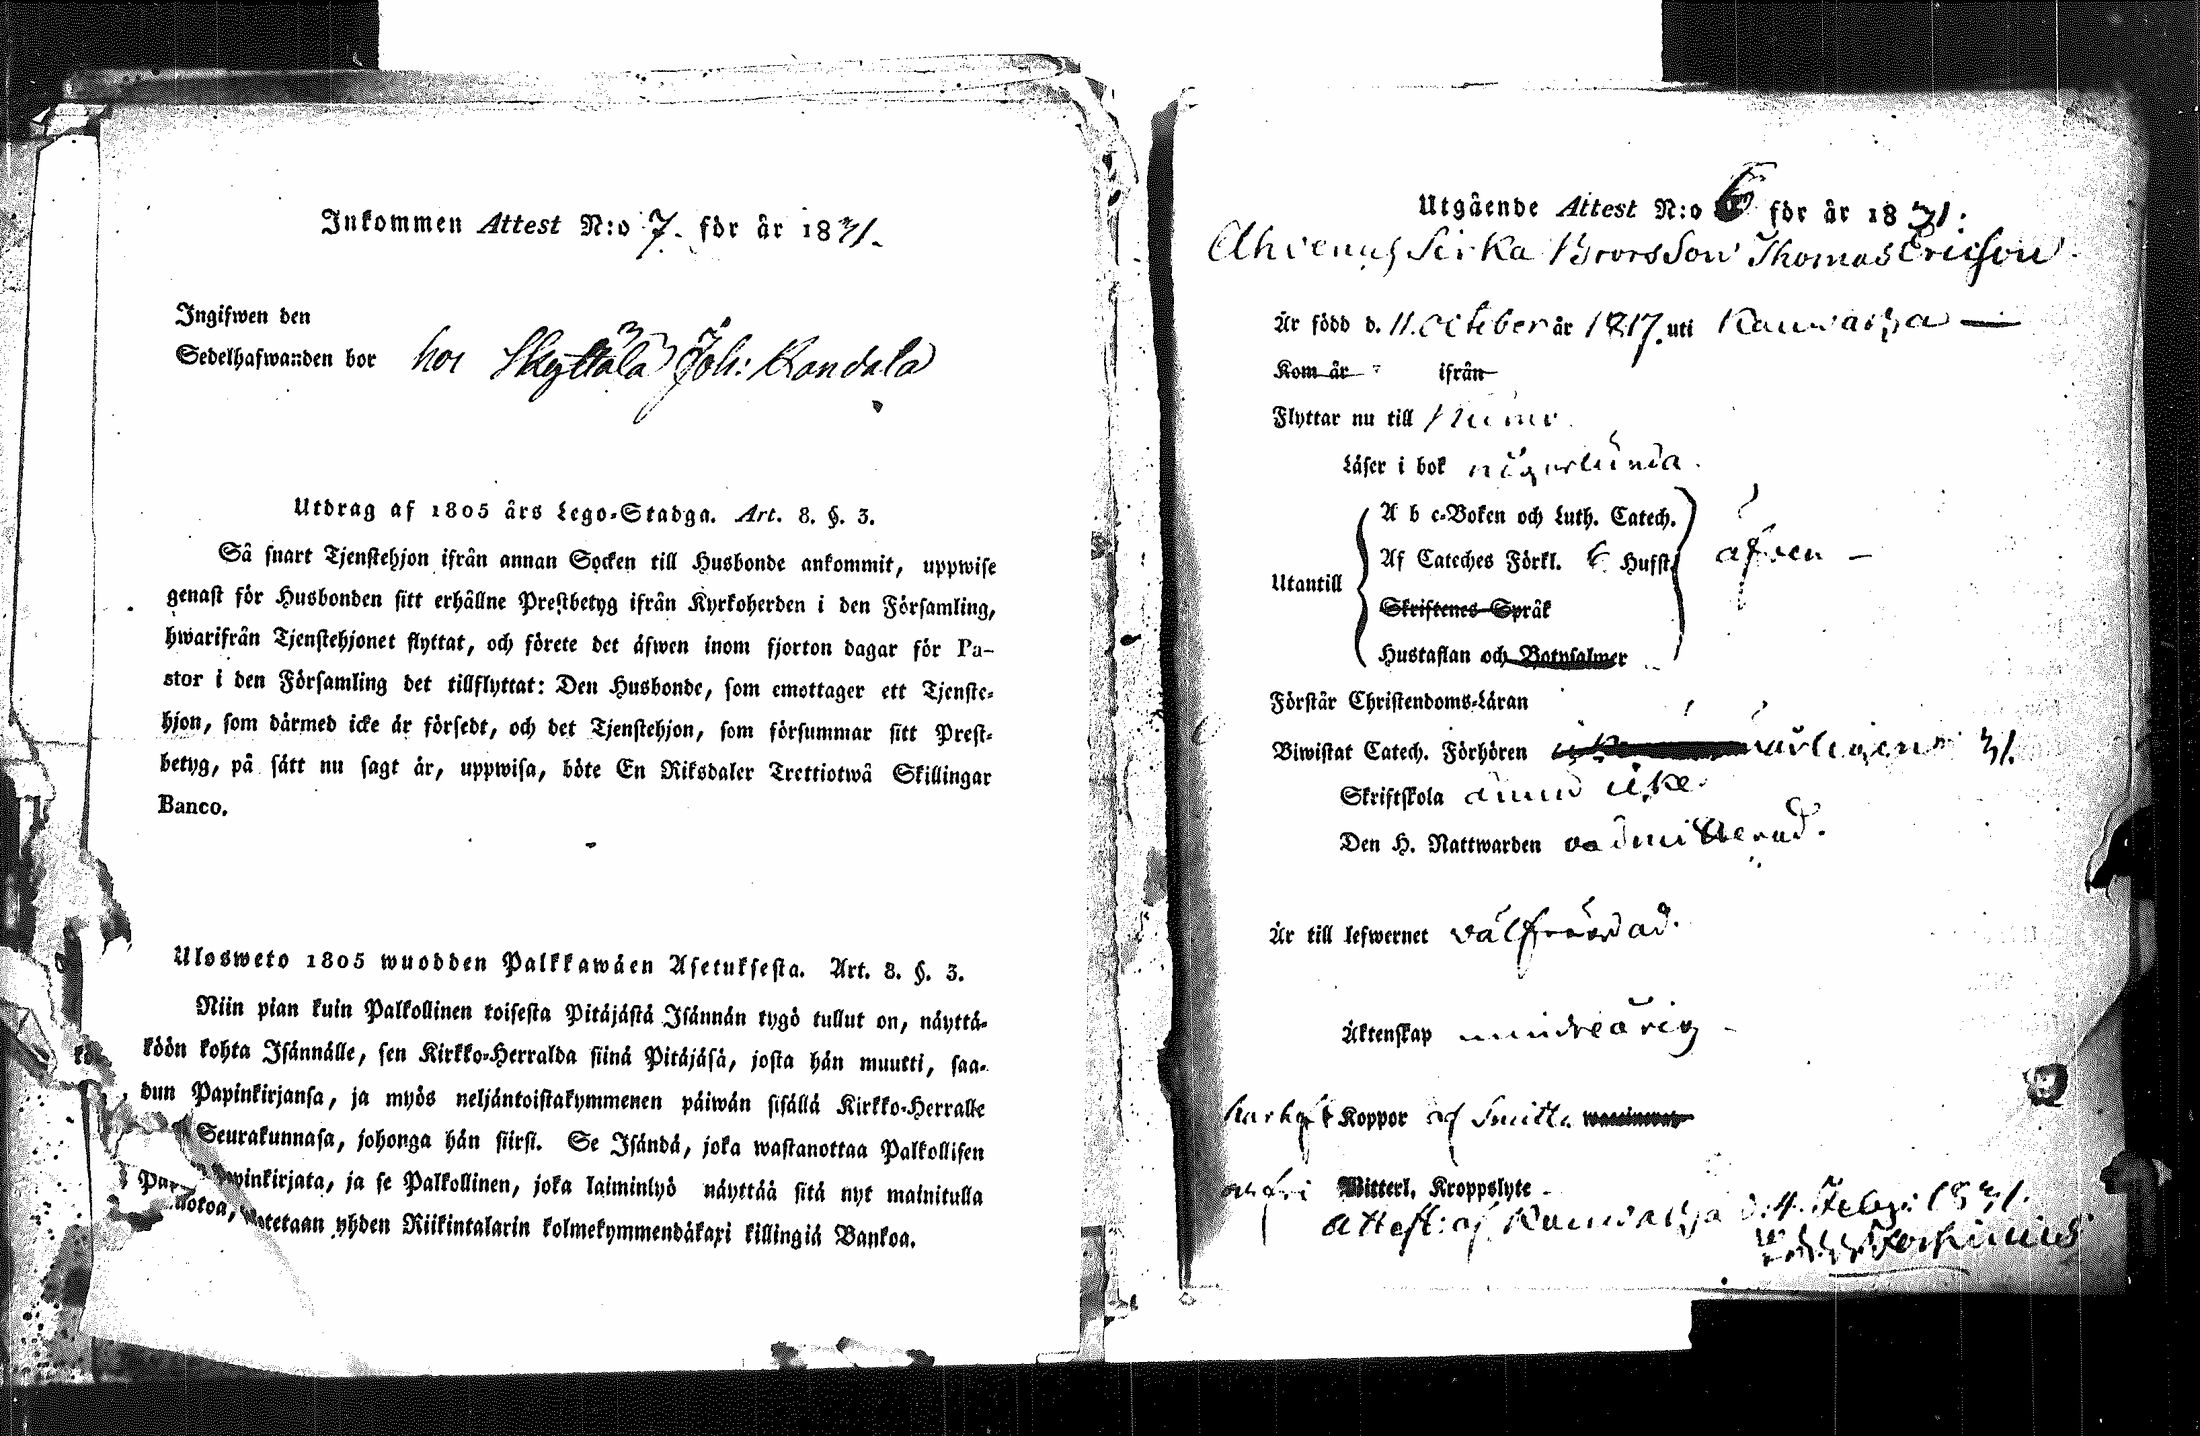 Inkommen Attest N:o 7. för år 1831.
Ingifwen den
Sedelhafwanden bor hos Skyttälä Joh: Kandala
Utdrag af 1805 års Lego-Stadga. Art. 8. §. 3.
Så snart Tjenstehjon ifrån annan Socken till Husbonde ankommit, uppwise
genast för Husbonden sitt erhållne Prestbetyg ifrån Kyrkoherden i den Församling,
hwarifrån Tjenstehjonet flyttat, och förete det äfwen inom fjorton dagar för Pa-
stor i den Församling det tillflyttat: Den Husbonde, som emottager ett Tjenste-
hjon, som därmed icke är försedt, och det Tjenstehjon, som försummar sitt Prest-
betyg, på sätt nu sagt är, uppwisa, böte En Riksdaler Trettiotwå Skillingar
Banco.
Ulosweto 1805 wuodden Palkkawäen Asetuksesta. Art. 8. §. 3.
Niin pian kuin Palkollinen toisesta Pitäjästä Isännän tygö tullut on, näyttä-
köön kohta Isännälle, sen Kirkko-Herralda siinä Pitäjäsä, josta hän muutti, saa-
dun Papinkirjansa, ja myös neljäntoistakymmenen päiwän sisällä Kirkko-Herralle
Seurakunnasa, johonga hän siirsi. Se Isändä, joka wastanottaa Palkollisen
pinkirjata, ja se Palkollinen, joka laiminlyö näyttää sitä nyt mainitulla
tetaan yhden Riikintalarin kolmekymmendäkaxi killingiä Bankoa.
Utgående Attest N:o 6 för år 1831.
Sirka Brorsson Thomas Ericson
Är född d. 11. October år 1817. uti
Kom år ifrån
Flyttar nu till
Läser i bok någorlunda.
A b c-Boken och Luth. Catech.
Af Cateches Förkl. 6 Hufst. äfven
Utantill
Skriftenes Språk
Hustaflan och Botpsalmer
Förstår Christendoms-Läran
Biwistat Catech. Förhören årligen 31.
Skriftskola ännu icke.
Den H. Nattwarden oadmitterad.
Är till lefwernet välfräjdad.
Äktenskap mindreårig
haft Koppor af Smitta
Witterl. Kroppslyte
Attest: af d. 4. Febr: 1831.